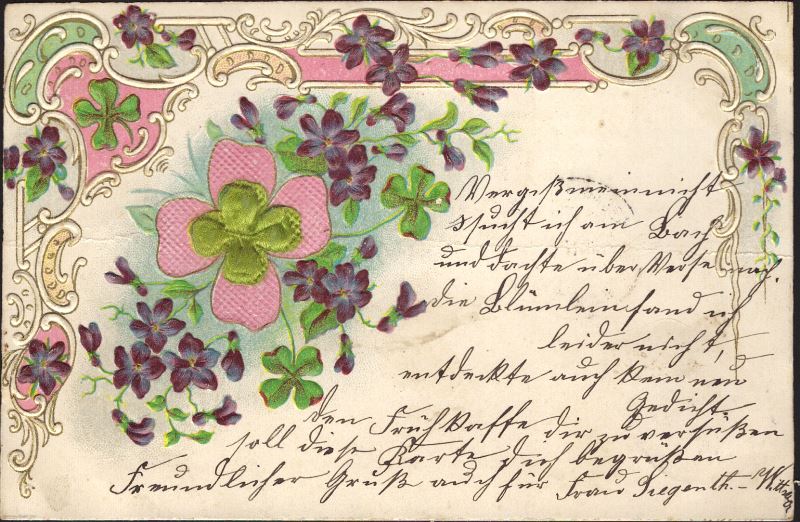 Vergeßmeinnicht
sucht ich am Bach
und dachte über Verse nach.
die Blümlein fand ich
leider nicht,
entdeckte auch kein neu
Gedicht
den Frühkaffe dir zu versüßen
soll diese Karte dich begrüßen
Freundlicher Gruß auch für Frau